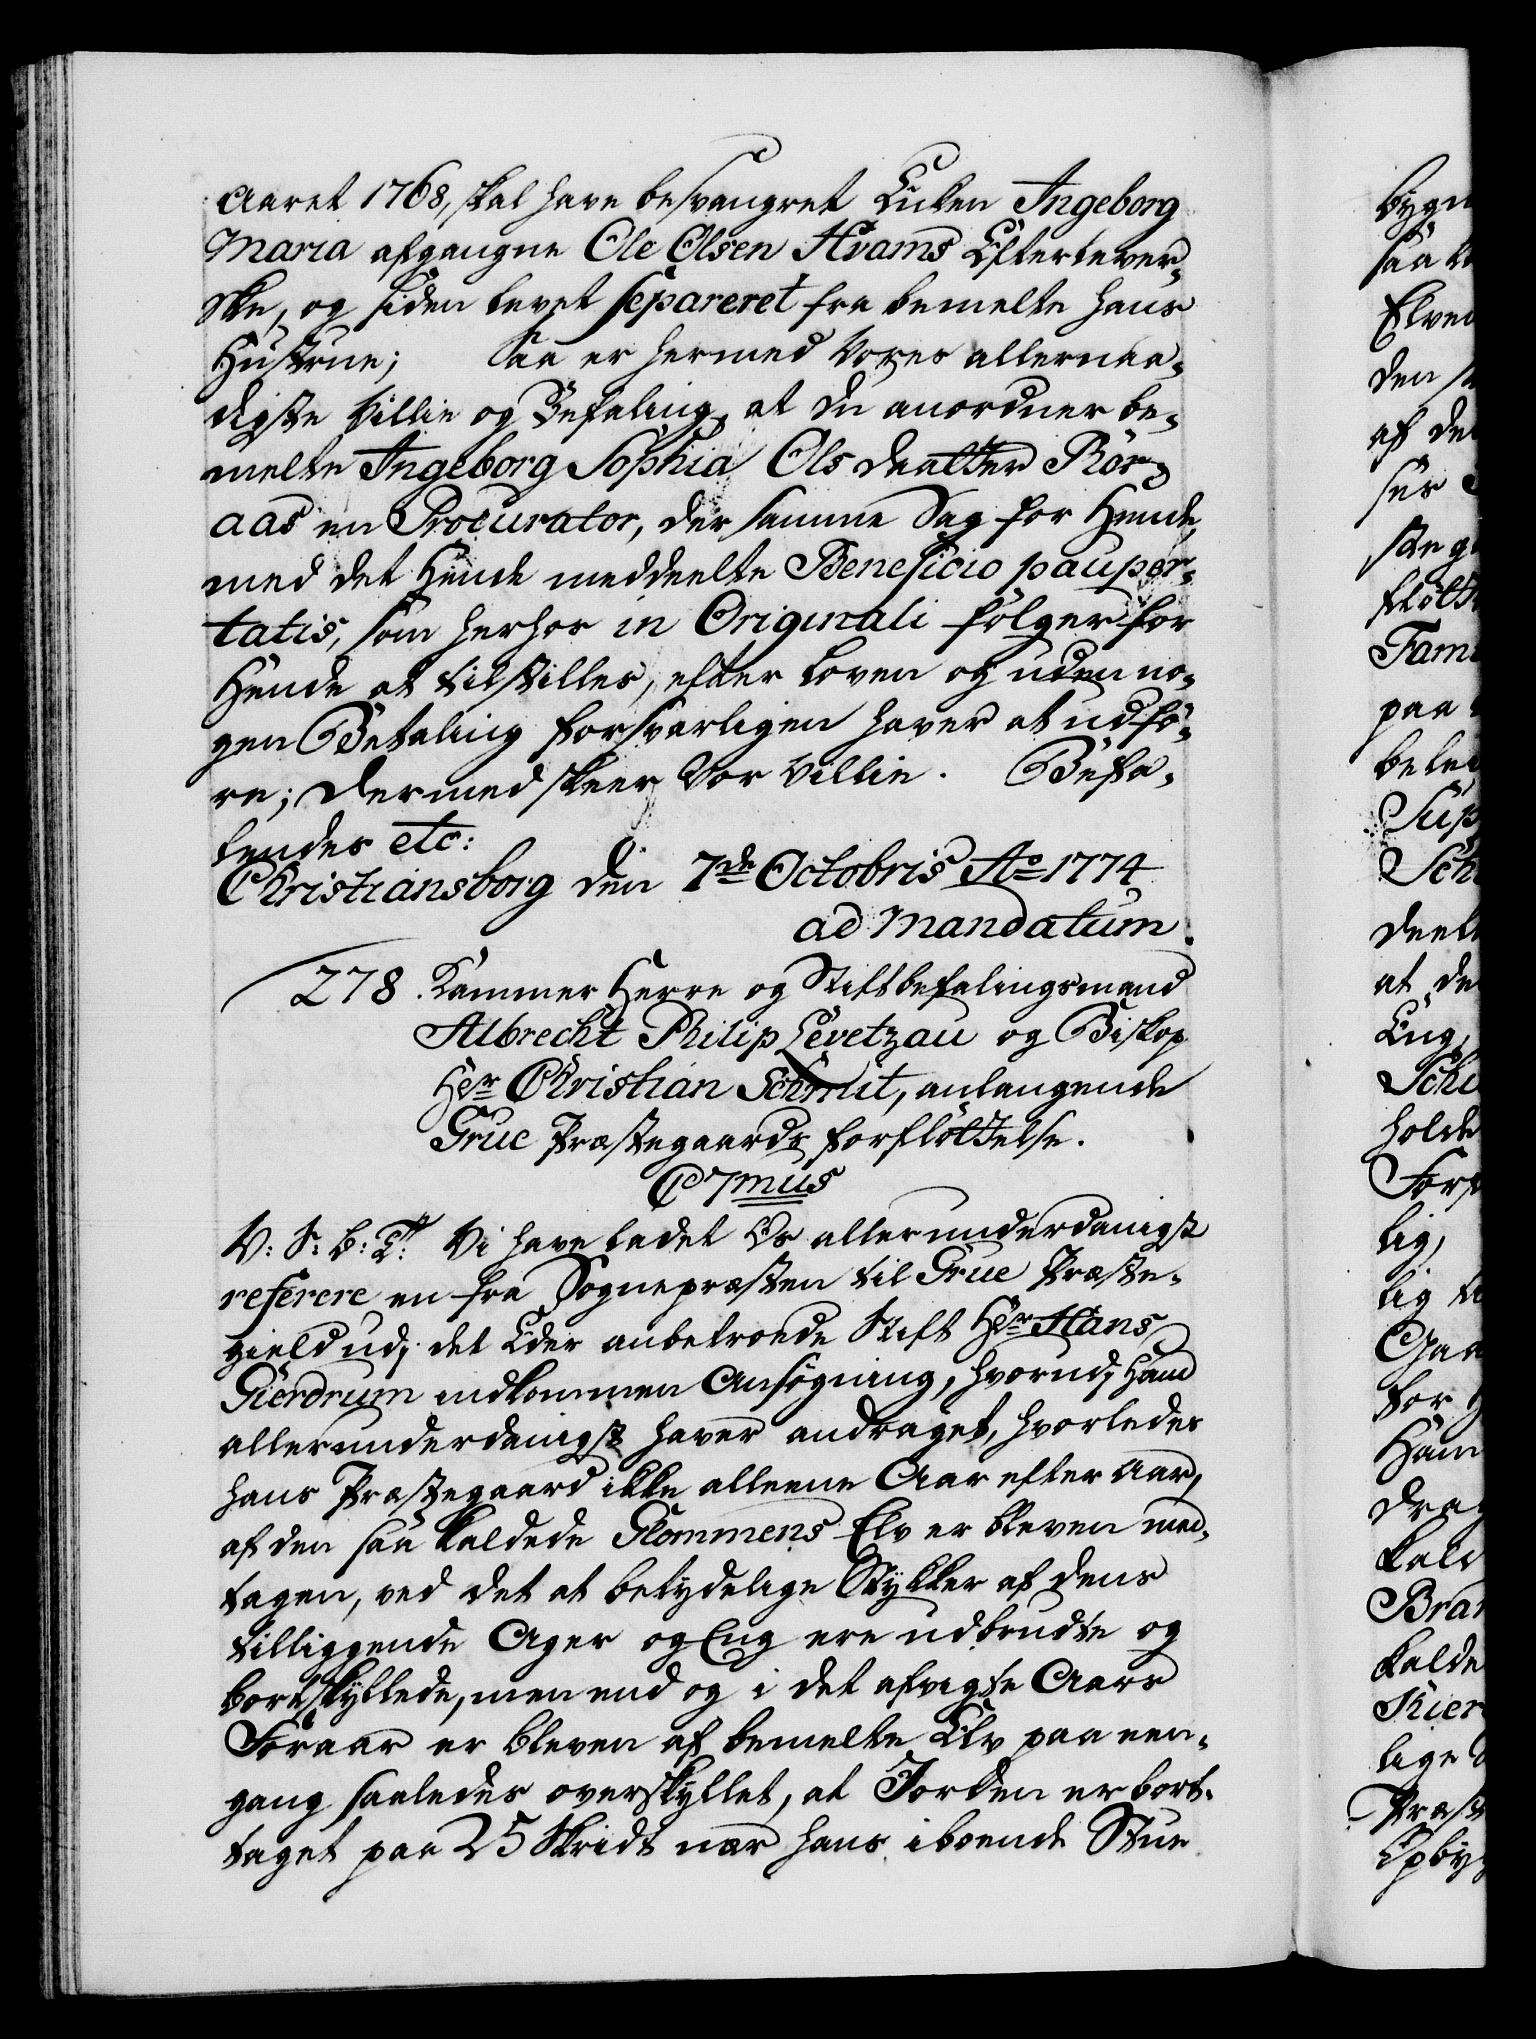 Aaret 1768, skal have besvangret Enken Ingeborg
Maria afgangne Ole Olsen Hvams Efterlever-
ske, og siden levet separeret fra bemelte hans
Hustrue; Saa er hermed Vores allernaa-
digste Villie og Befaling, at du anordner be-
melte Ingeborg Sophia Ols daatter Rör-
aas en Procurator, der samme Sag for Hende,
med det Hende meddeelte Beneficio pauper-
tatis, som herhos in Originali fölger for
Hende at tilstilles, efter Loven og uden no-
gen Betaling forsvarligen haver at udfö-
re; Dermed skeer Vor Villie. Befa-
lendes etc:
Christiansborg den 7de Octobris Ao 1774
ad Mandatum.
278. Kammer Herre og Stiftbefalingsmand
Albrecht Philip Levetzau og Biskop
Hr Christian Schmit, anlangende
Grue Præstegaards forflöttelse.
C7mus
V: S: B: T: Vi have ladet Os allerunderdanigst
referere en fra Sognepræsten til Grue Præste-
gield udj det Eder anbetroede Stift Hr Hans
Gierdrum indkommen Ansögning, hvorudj Hand
allerunderdanigst haver andraget, hvorledes
hans Præstegaard ikke alleene Aar efter Aar,
af den saa kaldede Glommens Elv er bleven med-
tagen, ved det at betydelige Stykker af dens
tilliggende Ager og Eng ere udbrudte og
bortskyllede, men end og i det afvigte Aars
Foraar er bleven af bemelte Elv paa een-
gang saaledes overskyllet, at Jorden er bort-
taget paa 25 Skridt nær hans iboende Stue